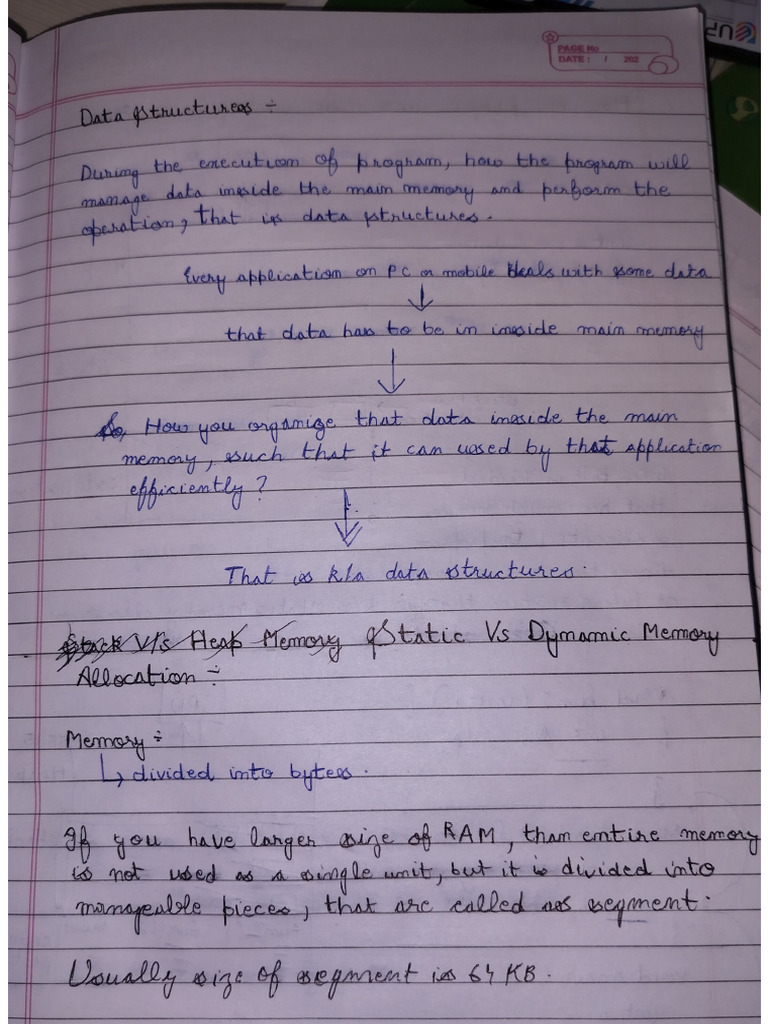 PAGE No
DATE: / 202
Data Structures ÷
During the execution of program, how the program will
manage data inside the main memory and perform the
operation, that is data structures.
Every application on PC or mobile deals with some data
↓
that data has to be in inside main memory
↓
So, How you organize that data inside the main
memory, such that it can used by that application
efficiently?
↓
That is k/a data structures.
Stack V/s Heap Memory Static Vs Dynamic Memory
Allocation ÷
Memory ÷
↳ divided into bytes.
If you have larger size of RAM, than entire memory
is not used as a single unit, but it is divided into
manageable pieces, that are called as segment.
Usually size of segment is 64 KB.